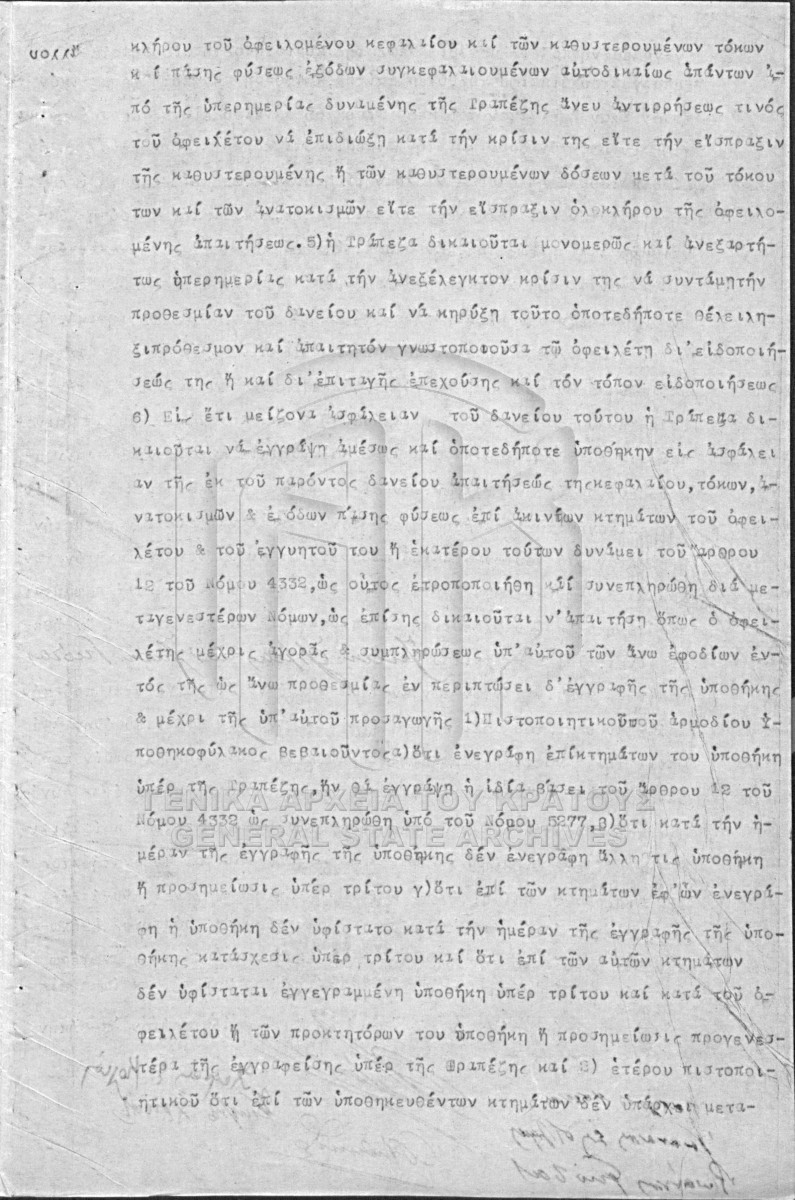 κλήρου τοῦ ὀφειλομένου κεφαλαίου καί τῶν καθυστερουμένων τόκων
καί πάσης φύσεως ἐξόδων συγκεφαλαιουμένων αὐτοδικαίως ἁπάντων ἀ-
πό τῆς ὑπερημερίας δυναμένης τῆς Τραπέζης ἄνευ ἀντιρρήσεως τινός
τοῦ ὀφειλέτου νά ἐπιδιώξῃ κατά τήν κρίσιν της εἴτε τήν εἴσπραξιν
τῆς καθυστερουμένης ἤ τῶν καθυστερουμένων δόσεων μετά τοῦ τόκου
των καί τῶν ἀνατοκισμῶν εἴτε τήν εἴσπραξιν ὁλοκλήρου τῆς ὀφειλο-
μένης ἀπαιτήσεως.5)ἡ Τράπεζα δικαιοῦται μονομερῶς καί ἀνεξαρτή-
τως ὑπερημερίας κατά τήν ἀνεξέλεγκτον κρίσιν της νά συντάμῃτήν
προθεσμίαν τοῦ δανείου καί νά κηρύξῃ τοῦτο ὁποτεδήποτε θέλειλη-
ξιπρόθεσμον καί ἀπαιτητόν γνωστοποιοῦσα τῷ ὀφειλέτῃ δι'εἰδοποιή-
σεώς της ἤ καί δι'ἐπιταγῆς ἐπεχούσης καί τόν τόπον εἰδοποιήσεως
6) Εἰς ἔτι μείζονα ἀσφάλειαν τοῦ δανείου τούτου ἡ Τράπεζα δι-
καιοῦται νά ἐγγράψῃ ἀμέσως καί ὁποτεδήποτε ὑποθήκην εἰς ἀσφάλει
αν τῆς ἐκ τοῦ παρόντος δανείου ἀπαιτήσεώς τηςκεφαλαίου,τόκων,ἀ-
νατοκισμῶν & ἐξόδων πάσης φύσεως ἐπί ἀκινήτων κτημάτων τοῦ ὀφει-
λέτου & τοῦ ἐγγυητοῦ του ἤ ἑκατέρου τούτων δυνάμει τοῦ ἄρθρου
12 τοῦ Νόμου 4332,ὡς οὗτος ἐτροποποιήθη καί συνεπληρώθη διά με-
ταγενεστέρων Νόμων,ὡς ἐπίσης δικαιοῦται ν'ἀπαιτήσῃ ὅπως ὁ ὀφει-
λέτης μέχρις ἀγορᾶς & συμπληρώσεως ὑπ'αὐτοῦ τῶν ἄνω ἐφοδίων ἐν-
τός τῆς ὡς ἄνω προθεσμίας ἐν περιπτώσει δ'ἐγγραφῆς τῆς ὑποθήκης
& μέχρι τῆς ὑπ'αὐτοῦ προσαγωγῆς 1)Πιστοποιητικοῦτοῦ ἁρμοδίου Ὑ-
ποθηκοφύλακος βεβαιοῦντοςα)ὅτι ἐνεγράφη ἐπίκτημάτων του ὑποθήκη
ὑπέρ τῆς Τραπέζης,ἥν θά ἐγγράψῃ ἡ ἰδία βάσει τοῦ ἄρθρου 12 τοῦ
Νόμου 4332 ὡς συνεπληρώθη ὑπό τοῦ Νόμου 5277,β)ὅτι κατά τήν ἡ-
μέραν τῆς ἐγγραφῆς τῆς ὑποθήκης δέν ἐνεγράφη ἄλλη τις ὑποθήκη
ἤ προσημείωσις ὑπέρ τρίτου γ)ὅτι ἐπί τῶν κτημάτων ἐφ'ὧν ἐνεγρά-
φη ἡ ὑποθήκη δέν ὑφίστατο κατά τήν ἡμέραν τῆς ἐγγραφῆς τῆς ὑπο-
θήκης κατάσχεσις ὑπέρ τρίτου καί ὅτι ἐπί τῶν αὐτῶν κτημάτων
δέν ὑφίσταται ἐγγεγραμμένη ὑποθήκη ὑπέρ τρίτου καί κατά τοῦ ὀ-
φειλέτου ἤ τῶν προκτητόρων του ὑποθήκη ἤ προσημείωσις προγενεσ-
τέρα τῆς ἐγγραφείσης ὑπέρ τῆς Τραπέζης καί 2) ἑτέρου πιστοποι-
ητικοῦ ὅτι ἐπί τῶν ὑποθηκευθέντων κτημάτων δέν ὑπάρχει μετα-
ΓΕΝΙΚΑ ΑΡΧΕΙΑ ΤΟΥ ΚΡΑΤΟΥΣ
GENERAL STATE ARCHIVES